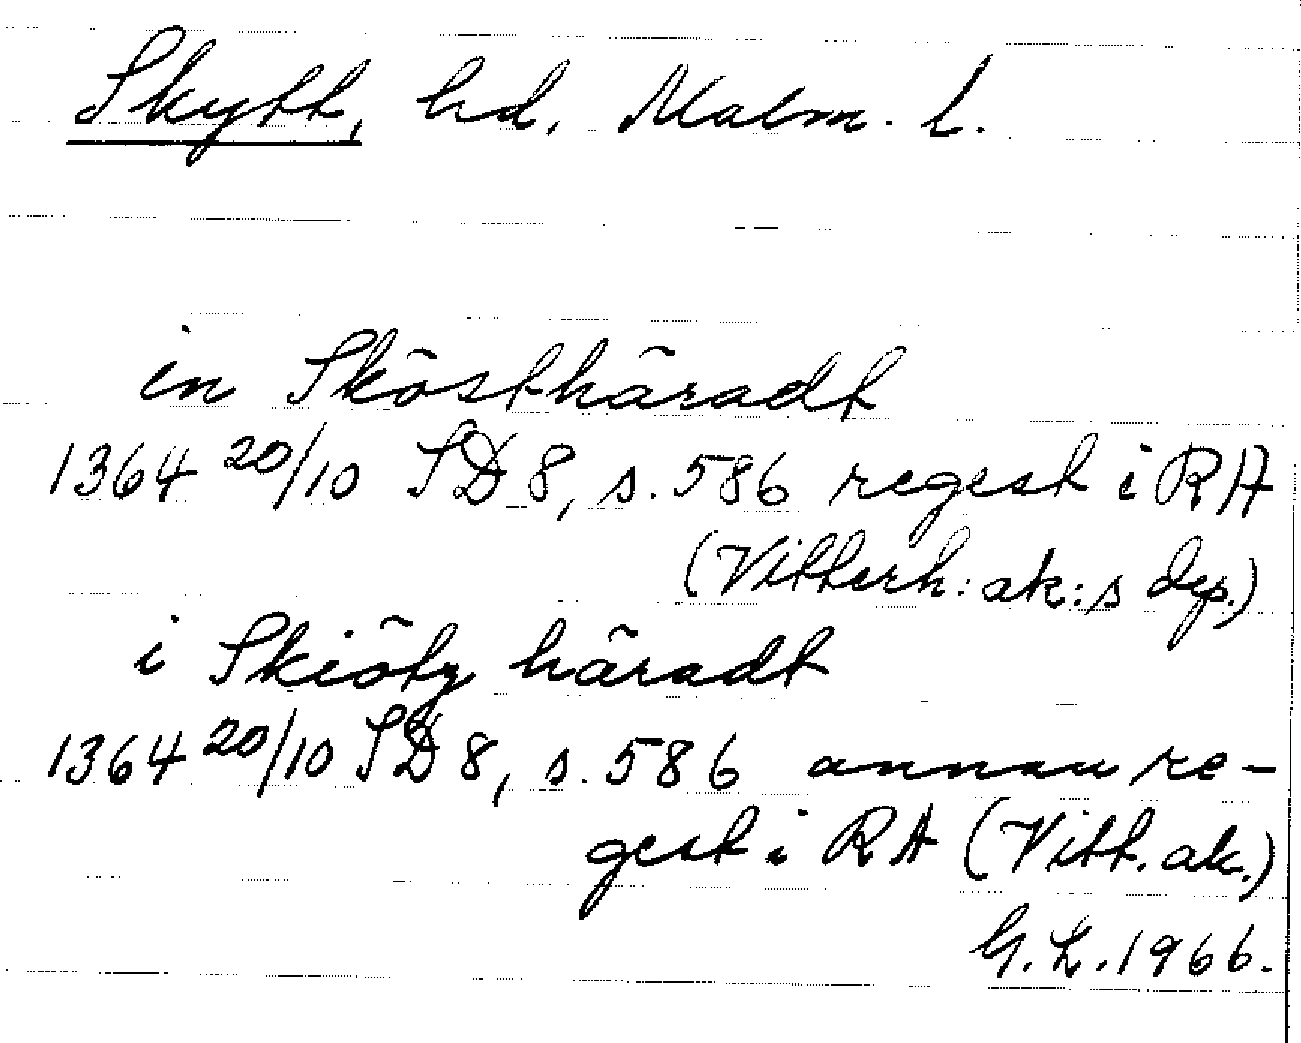 Skytt, hd. Malm. l.
in Skösthäradt
1364 20/10 SD 8, s. 586 regest i RA
(Vitterh: ak:s dep.)
i Skiötz häradt
1364 20/10 SD 8, s. 586 annan re-
gest i RA (Vitt. ak.)
G. L. 1966.